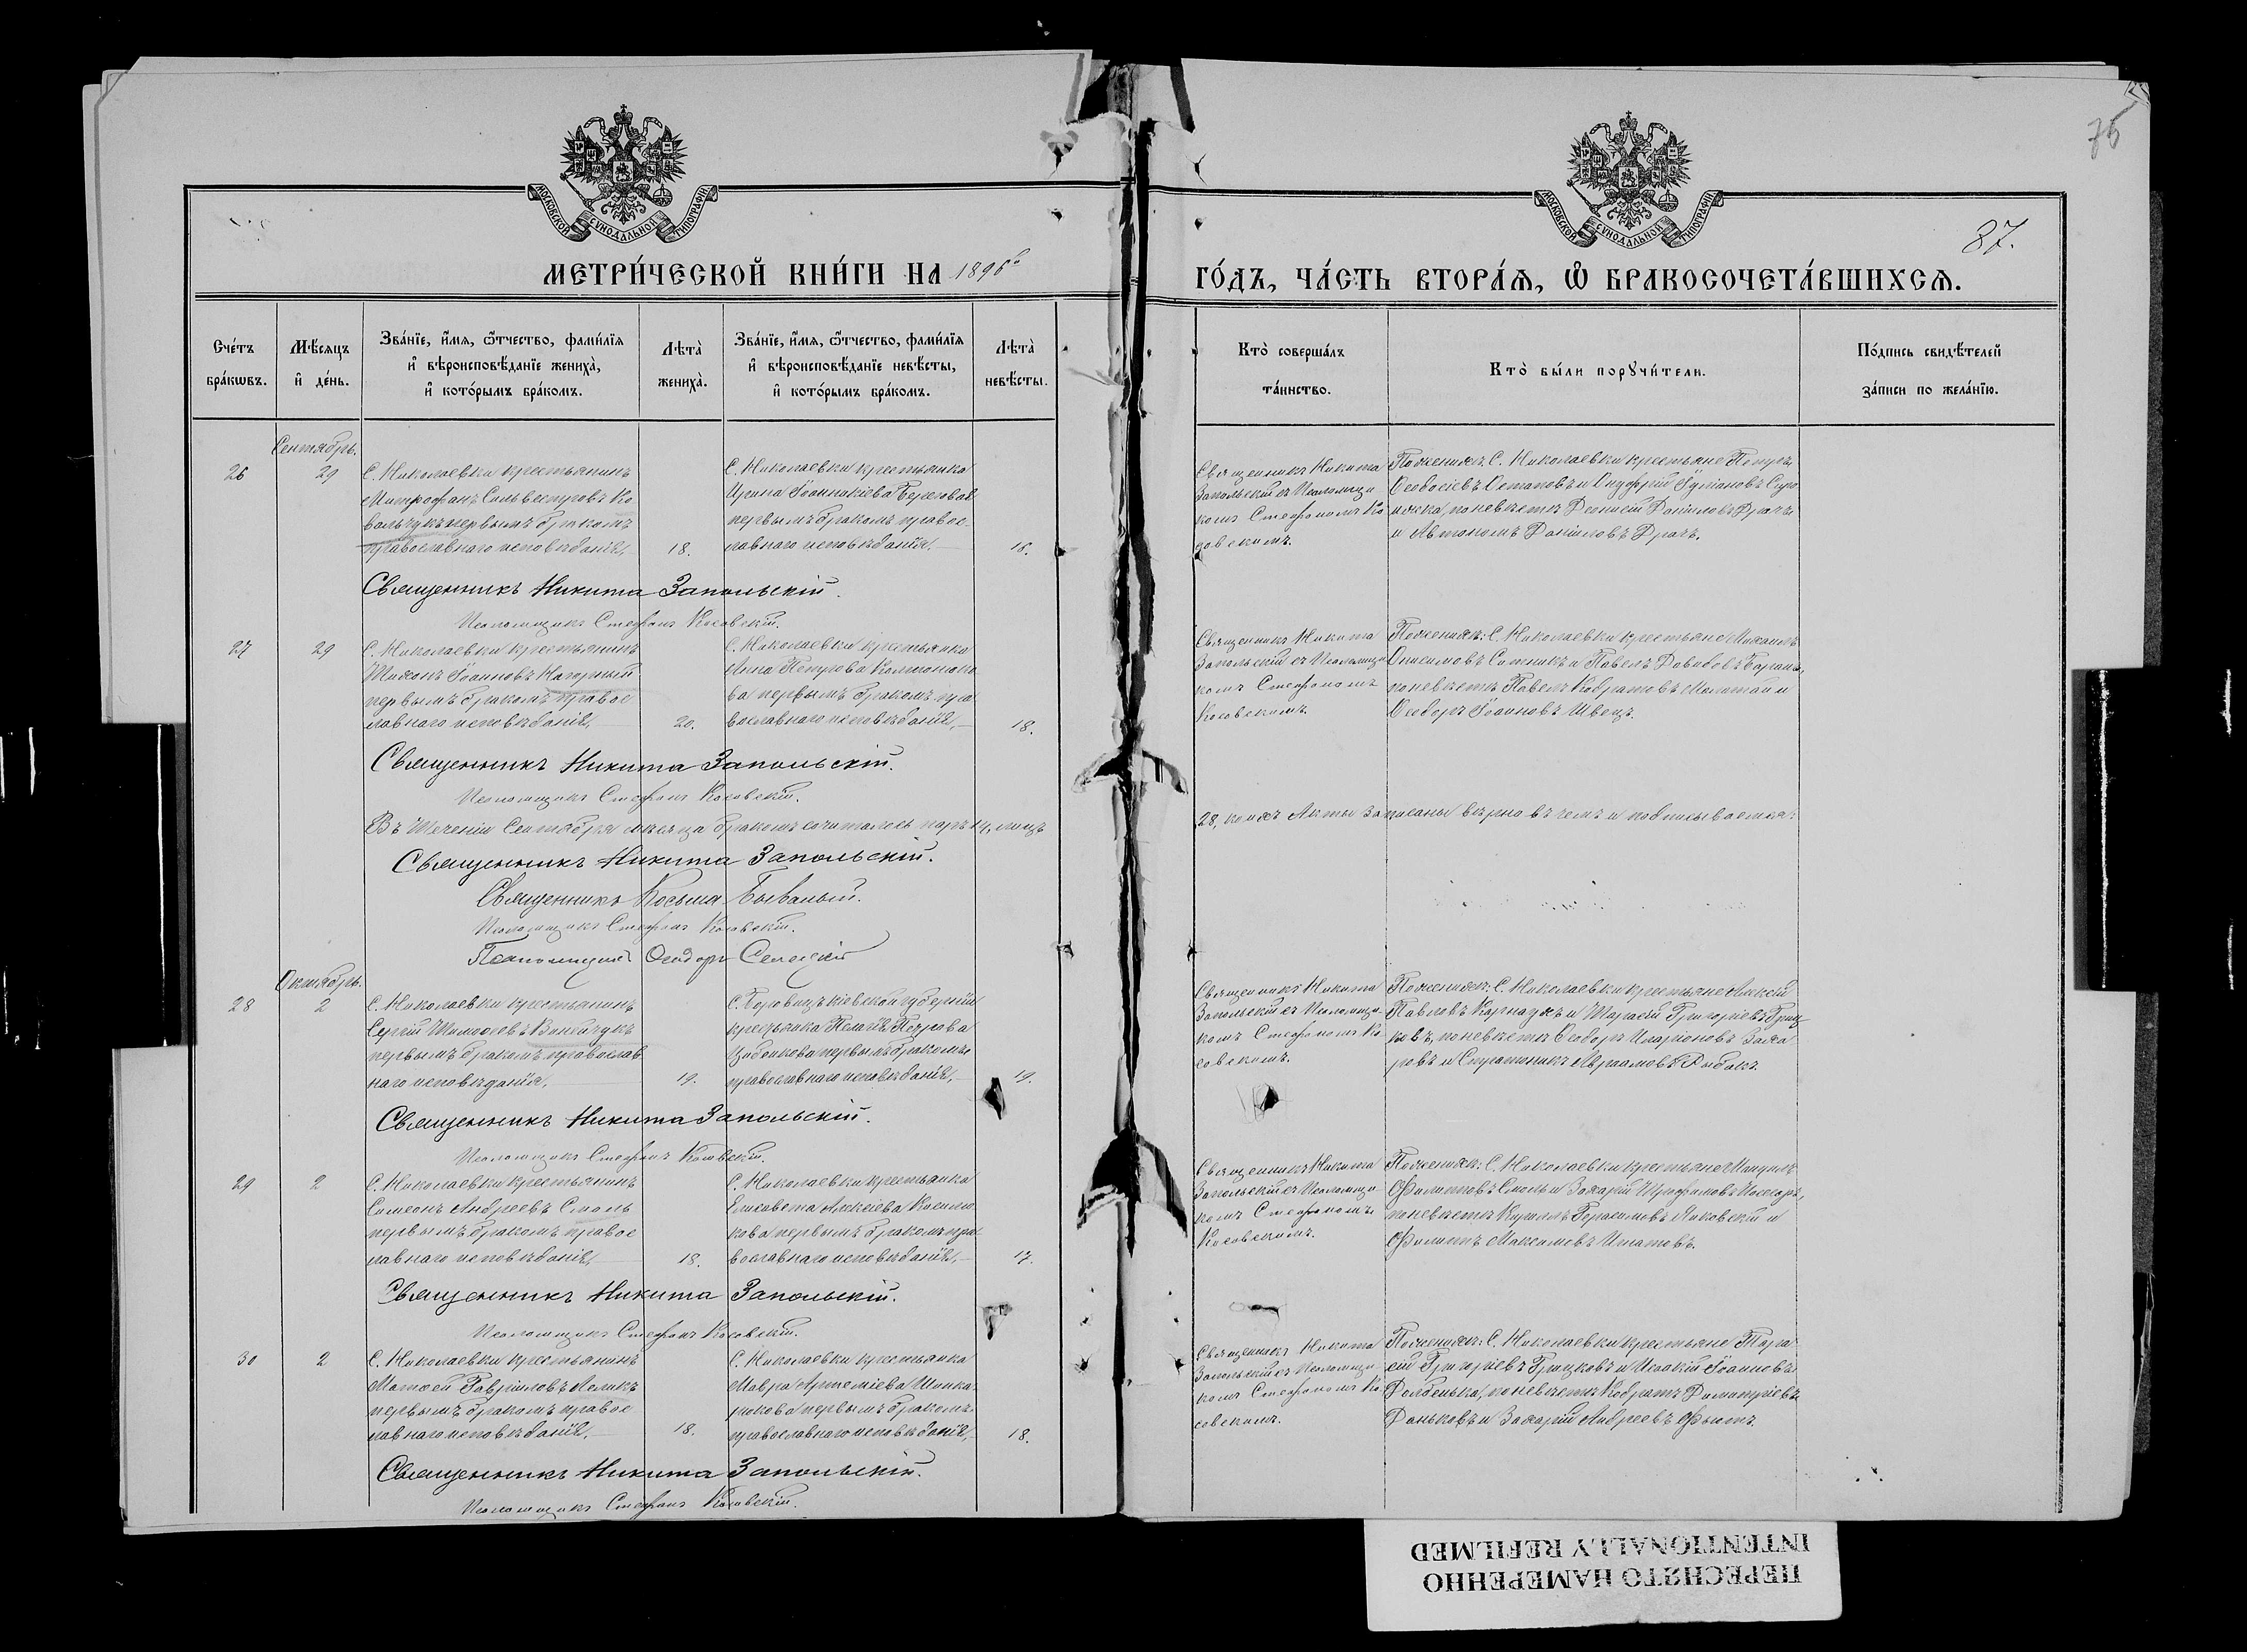 75
87.
МОСКОВСКОЙ СѴНОДАЛЬНОЙ ТИПОГРАФІИ
МОСКОВСКОЙ СѴНОДАЛЬНОЙ ТИПОГРАФІИ
МЕТРИ́ЧЕСКОЙ КНИ́ГИ НА 1896й
ГО́ДЪ, ЧА́СТЬ ВТОРА́Ѧ, Ѽ БРАКОСОЧЕТА́ВШИХСѦ.
Сче́тъ бра́кѡвъ.
Мѣ́сѧцъ и҆ де́нь.
Зва́нїе, и҆́мѧ, ѻ҆́тчество, фами́лїѧ
и҆ вѣроисповѣ́данїе жениха̀,
и҆ кото́рымъ бра́комъ.
Лѣ́та̀ жениха̀.
Зва́нїе, и҆́мѧ, ѻ҆́тчество, фами́лїѧ
и҆ вѣроисповѣ́данїе невѣ́сты,
и҆ кото́рымъ бра́комъ.
Лѣ́та̀ невѣ́сты.
Кто̀ соверша́лъ
та́инство.
Кто̀ бы́ли порꙋчи́тели.
По́дпись свидѣ́телей
за́писи по жела́нїю.
Сентябрь.
26
29
С. Николаевки крестьянинъ
Митрофанъ Сильвестровъ Ко
вальчукъ первымъ бракомъ
православнаго исповѣданія,
18.
С. Николаевки крестьянка
Ирина Іоанникіева Береговая
первымъ бракомъ правос-
лавнаго исповѣданія,
18.
Священникъ Никита
Запольскій съ Псаломщи
комъ Стефаномъ Ко
совскимъ.
По женихѣ: С. Николаевки крестьяне Петръ
Ѳеодосіевъ Остаповъ и Онуфрій
по невѣстѣ Леонтій Даніиловъ Драчъ
и Автономъ Даніиловъ Драчъ.
Священникъ Никита Запольскій.
Псаломщикъ Стефанъ Косовскій.
27
29
С. Николаевки крестьянинъ
Тихонъ Іоанновъ Нагорный
первымъ бракомъ правос
лавнаго исповѣданія,
20.
С. Николаевки крестьянка
Анна Петрова
ва первымъ бракомъ пра
вославнаго исповѣданія,
18.
Священникъ Никита
Запольскій съ Псаломщи
комъ Стефаномъ
Косовскимъ.
По женихѣ: С. Николаевки крестьяне Михаилъ
Онисимовъ Сотникъ и Павелъ Давидовъ Баранъ,
по невѣстѣ Павелъ Кодратовъ и
Ѳеодоръ Іоанновъ Швецъ.
Священникъ Никита Запольскій.
Псаломщикъ Стефанъ Косовскій.
Въ теченіи Сентября мѣсяца бракомъ сочиталось паръ 14, лицъ
28, коихъ Акты записаны вѣрно въ чемъ и подписываемся:
Священникъ Никита Запольскій.
Священникъ Косьма Бывалый.
Псаломщикъ Стефанъ Косовскій.
Псаломщикъ Ѳеодоръ
Октябрь.
28
2
С. Николаевки крестьянинъ
Сергій Тимоѳеевъ
первымъ бракомъ православ
наго исповѣданія,
19.
С. Боровицъ кіевской губерніи
крестьянка Пелагія Петрова
Цибенкова первымъ бракомъ
православнаго исповѣданія,
19.
Священникъ Никита
Запольскій съ Псаломщи-
комъ Стефаномъ Ко
совскимъ.
По женихѣ: С. Николаевки крестьяне Алексій
Павловъ Карнаухъ и Тарасій Григоріевъ Гриц
ковъ, по невѣстѣ Ѳеодоръ Иларіоновъ Заха
ровъ и Стратоникъ Авраамовъ Рибакъ.
Священникъ Никита Запольскій.
Псаломщикъ Стефанъ Косовскій.
29
2
С. Николаевки крестьянинъ
Симеонъ Андреевъ Смоль
первымъ бракомъ правос
лавнаго исповѣданія,
18.
С. Николаевки крестьянка
Елисавета Алексіева
кова первымъ бракомъ пра
вославнаго исповѣданія,
17.
Священникъ Никита
Запольскій съ Псаломщи
комъ Стефаномъ
Косовскимъ.
По женихѣ: С. Николаевки крестьяне
Филиповъ Смоль и Захарій Трофимовъ
по невѣстѣ Кириллъ Герасимовъ и
Филиппъ Максимовъ Игнатовъ.
Священникъ Никита Запольскій.
Псаломщикъ Стефанъ Косовскій.
30
2
С. Николаевки крестьянинъ
Матѳей Гавріиловъ
первымъ бракомъ правос
лавнаго исповѣданія,
18.
С. Николаевки крестьянка
Мавра Артеміева Шинка
рюкова первымъ бракомъ
православнаго исповѣданія,
18.
Священникъ Никита
Запольскій съ Псаломщи
комъ Стефаномъ Ко
совскимъ.
По женихѣ: С. Николаевки крестьяне Тара
сій Григоріевъ Грицковъ и Исаакій Іоанновъ
по невѣстѣ Кодратъ Димитріевъ
Даньковъ и Захарій Андреевъ
Священникъ Никита Запольскій.
Псаломщикъ Стефанъ Косовскій.
ПЕРЕСНЯТО НАМЕРЕННО
INTENTIONALLY REFILMED